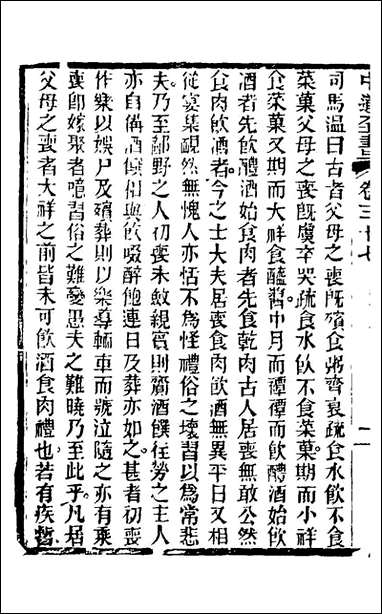 中道全書 卷三十七
司馬溫曰古者父母之喪旣殯食粥齊衰疏食水飮不食
菜菓父母之喪旣虞卒哭疏食水飮不食菜菓期而小祥
食菜菓又期而大祥食醯醬中月而禫禫而飮醴酒始飮
酒者先飮醴酒始食肉者先食乾肉古人居喪無敢公然
食肉飮酒者今之士大夫居喪食肉飮酒無異平日又相
從宴集靦然無愧人亦恬不爲怪禮俗之壞習以爲常悲
夫乃至鄙野之人初喪未斂親賓則齎酒饌往勞之主人
亦自備酒饌相與飮啜醉飽連日及葬亦如之甚者初喪
作樂以娛尸及殯葬則以樂導輀車而號泣隨之亦有乘
喪卽嫁娶者噫習俗之難變愚夫之難曉乃至此乎凡居
父母之喪者大祥之前皆未可飮酒食肉禮也若有疾暫